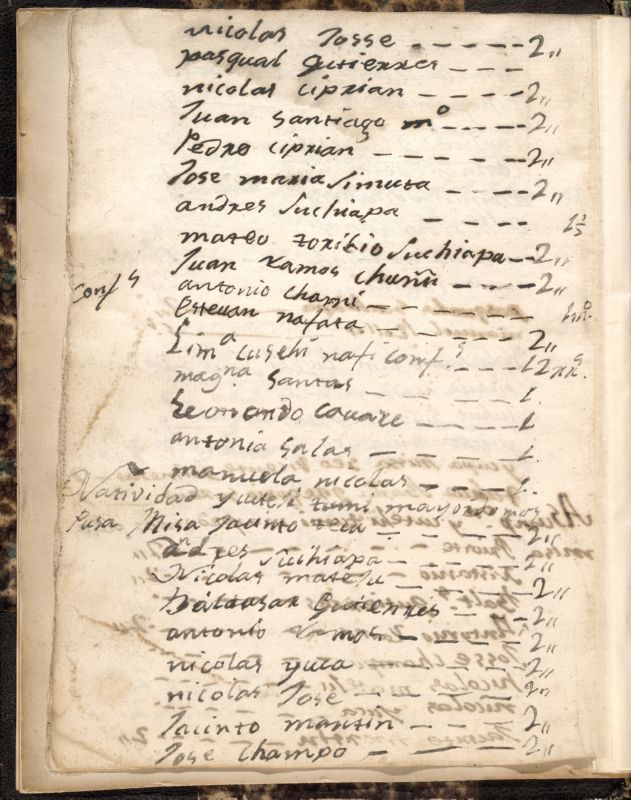 nicolas Josse - - - - - 2,,
pasqual Gutierres - - -
nicolas ciprian - - - - 2,,
Juan Santiago mo - - - - 2,,
Pedro ciprian - - - - - 2,,
Jose maria Simuta - - - - 2,,
andres Suchiapa - - - - 1½
mateo toribio Suchiapa - - 2,,
Juan Ramos - - - - 2,,
Confs antonio charpi - - - - - -
Estevan nafata - - - - - 2,,
- - - 12 rrs
magna Santas - - - - 1.
Leonardo Cauare - - - - 1
antonia Salas - - - - - 1.
manuela nicolas - - - - 1.
Natividad tumi mayordomos
Misa Jacinto - - - - 2,,
andres Suchiapa - - - - - 2,,
Nicolas mateu - - - - - 2,,
Baldasar Gutierres - - - 2,,
antonio Ramos - - - - 2,,
nicolas yuca - - - - 2,,
nicolas Jose - - - - 2,,
Jacinto martin - - - 2,,
Jose Champo - - - 2,,